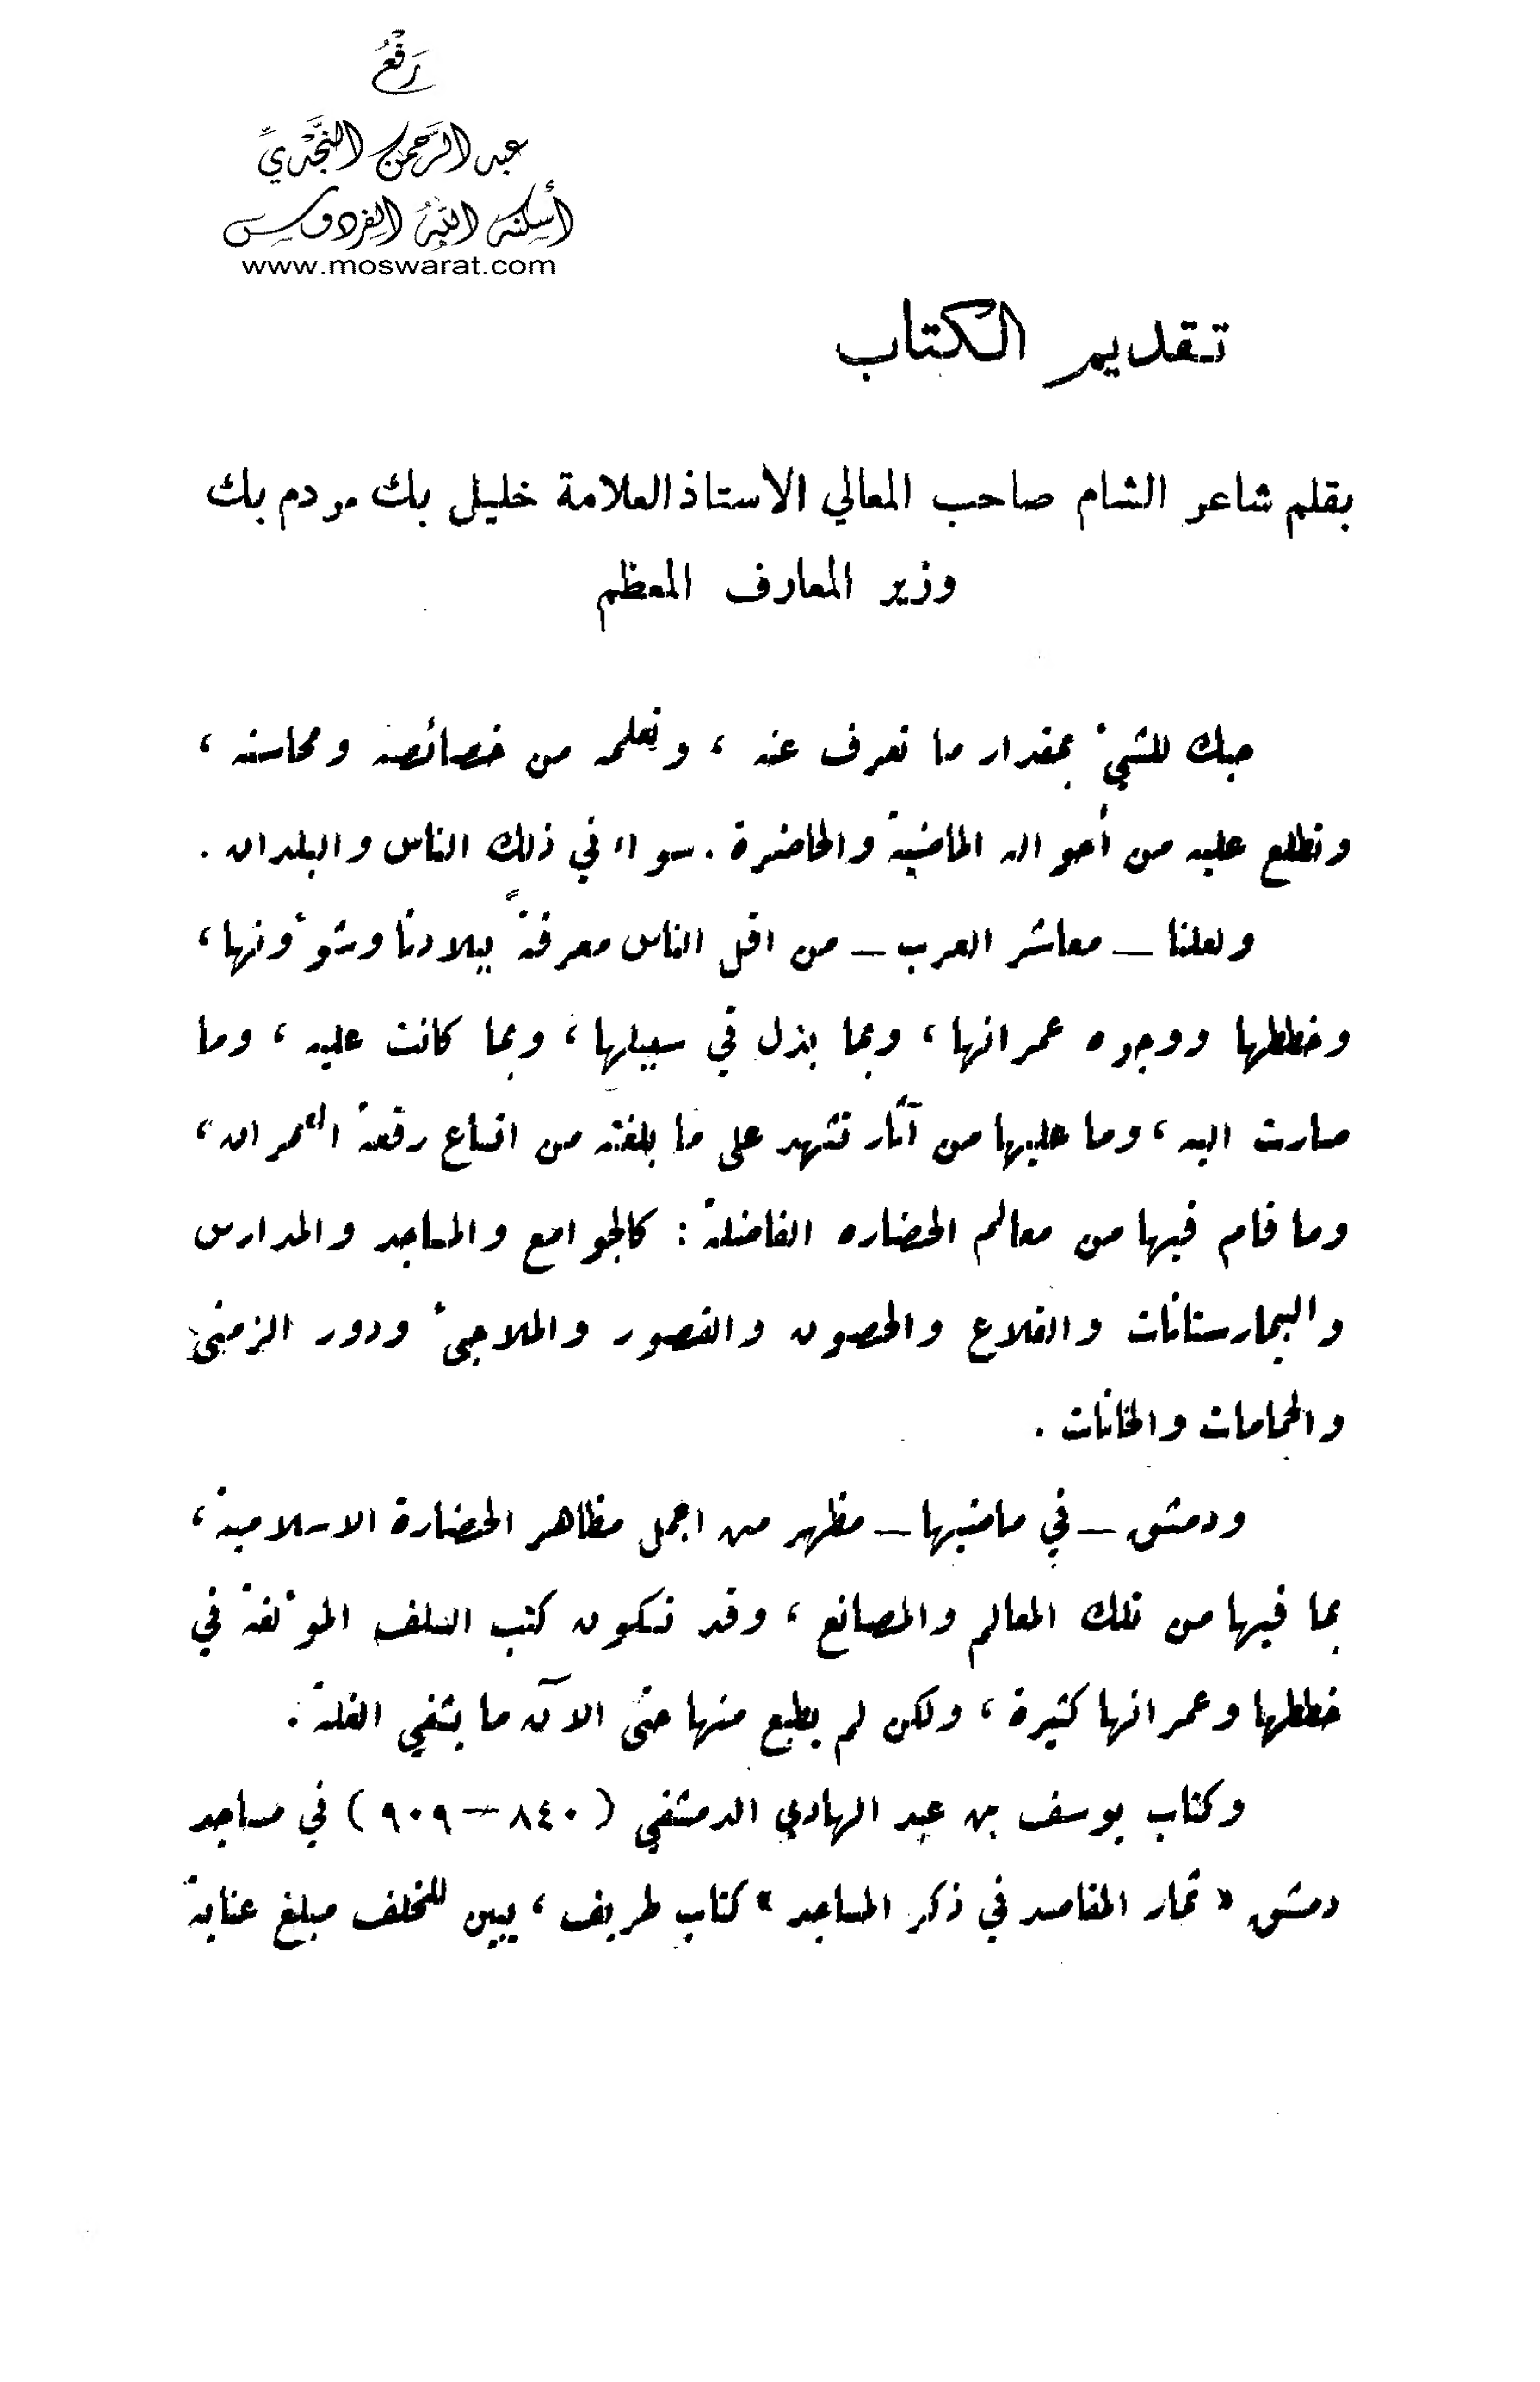 رَفْعُ
عبد الرَّحمن النَّجْديِّ
أسكنه اللهُ الفردوس
www.moswarat.com
تقديم الكتاب
بقلم شاعر الشام صاحب المعالي الأستاذ العلامة خليل بك مردم بك
وزير المعارف المعظم
حبك للشيء بمقدار ما تعرف عنه ، وتعلمه من خصائصه ومحاسنه ،
وتطلع عليه من أحواله الماضية والحاضرة . سواء في ذلك الناس والبلدان .
ولعلنا — معاشر العرب — من اقل الناس معرفةً ببلادنا وشؤونها ،
وخططها ووجوه عمرانها ، وبما بذل في سبيلها ، وبما كانت عليه ، وما
صارت اليه ، وما عليها من آثار تشهد على ما بلغته من اتساع رقعة العمران ،
وما قام فيها من معالم الحضاره الفاضلة : كالجوامع والمساجد والمدارس
والبيمارستانات والقلاع والحصون والقصور والملاجئ ودور الزمنى
والحمامات والخانات .
ودمشق — في ماضيها — مظهر من اجمل مظاهر الحضارة الاسلامية ،
بما فيها من تلك المعالم والمصانع ، وقد تكون كتب السلف المؤلفة في
خططها وعمرانها كثيرة ، ولكن لم يطبع منها حتى الآن ما يشفي الغلة .
وكتاب يوسف بن عبد الهادي الدمشقي ( ٨٤٠ — ٩٠٩ ) في مساجد
دمشق « ثمار المقاصد في ذكر المساجد » كتاب طريف ، يبين للخلف مبلغ عناية